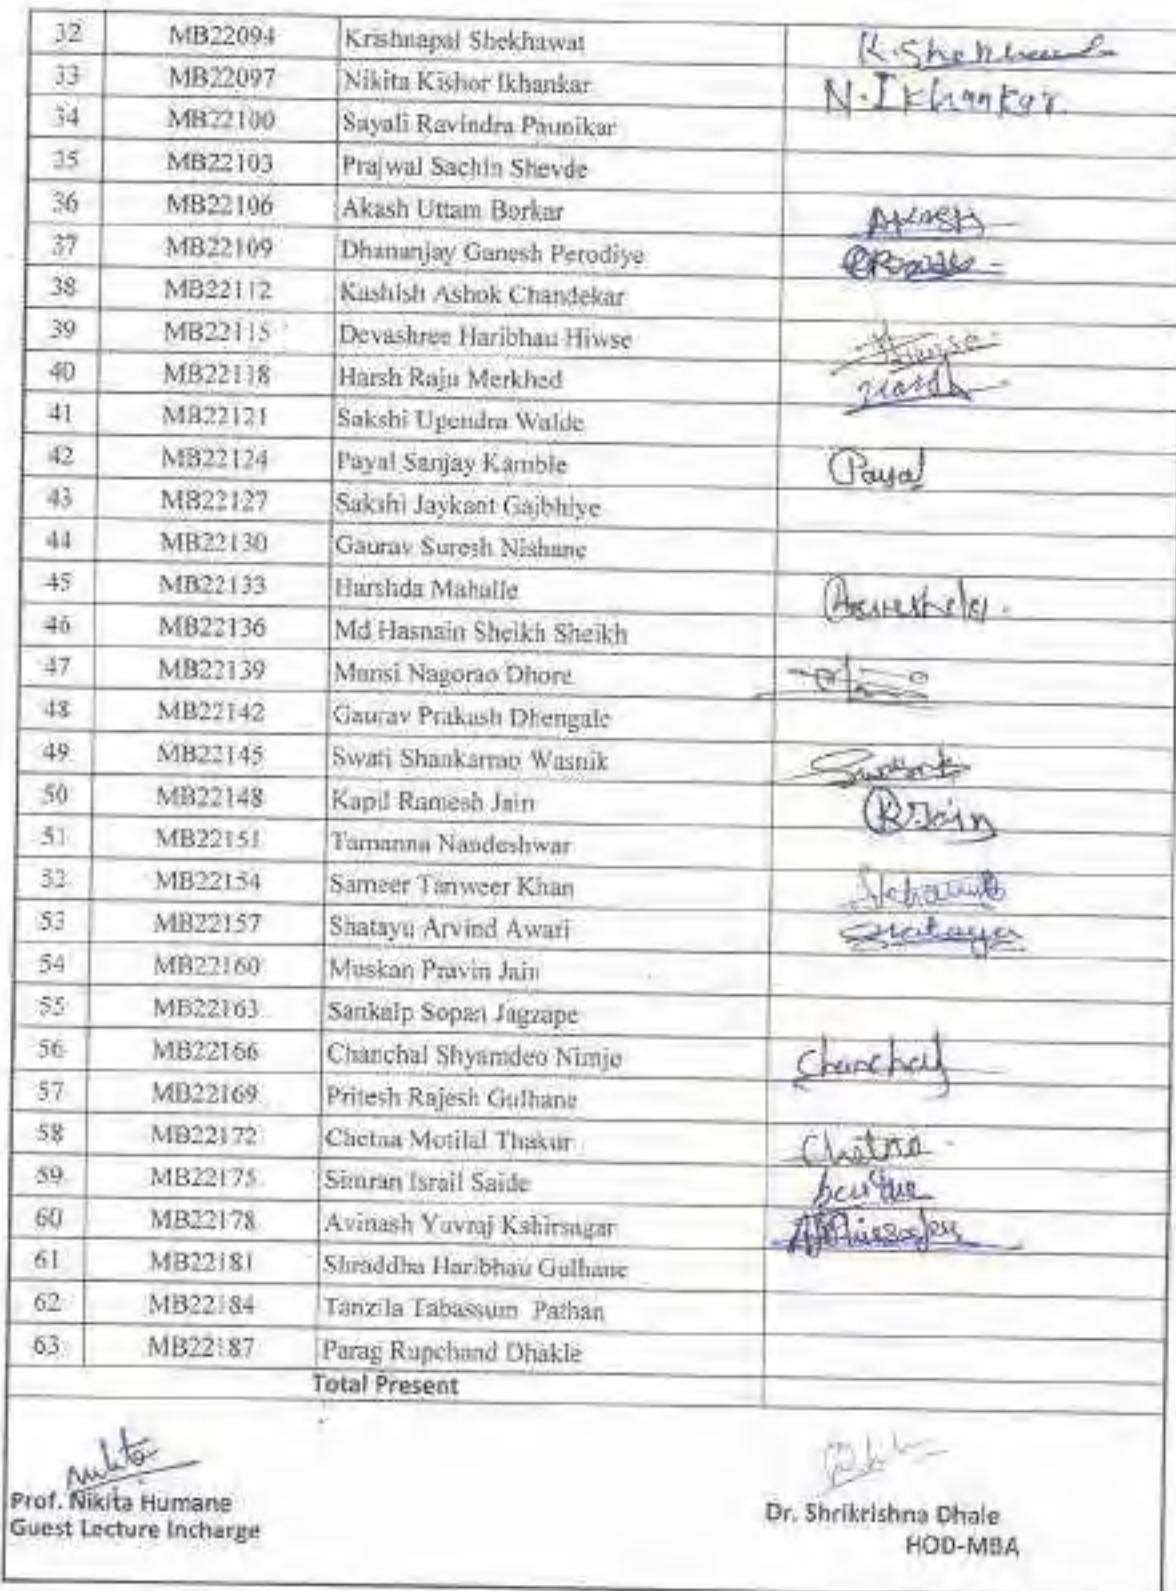 32 MB22094 Krishnapal Shekhawat K.Shekhawat
33 MB22097 Nikita Kishor Ikhankar N.Ikhankar.
34 MB22100 Sayali Ravindra Paunikar
35 MB22103 Prajwal Sachin Shevde
36 MB22106 Akash Uttam Borkar Akash
37 MB22109 Dhananjay Ganesh Perodiye
38 MB22112 Kashish Ashok Chandekar
39 MB22115 Devashree Haribhau Hiwse
40 MB22118 Harsh Raju Merkhed
41 MB22121 Sakshi Upendra Walde
42 MB22124 Payal Sanjay Kamble Payal
43 MB22127 Sakshi Jaykant Gajbhiye
44 MB22130 Gaurav Suresh Nishane
45 MB22133 Harshda Mahalle
46 MB22136 Md Hasnain Sheikh Sheikh
47 MB22139 Mansi Nagorao Dhore
48 MB22142 Gaurav Prakash Dhengale
49 MB22145 Swati Shankarrao Wasnik
50 MB22148 Kapil Ramesh Jain K.Jain
51 MB22151 Tamanna Nandeshwar
52 MB22154 Sameer Tanweer Khan
53 MB22157 Shatayu Arvind Awari Shatayu
54 MB22160 Muskan Pravin Jain
55 MB22163 Sankalp Sopan Jagzape
56 MB22166 Chanchal Shyamdeo Nimje Chanchal
57 MB22169 Pritesh Rajesh Gulhane
58 MB22172 Chetna Motilal Thakur Chetna
59 MB22175 Simran Israil Saide
60 MB22178 Avinash Yuvraj Kshirsagar
61 MB22181 Shraddha Haribhau Gulhane
62 MB22184 Tanzila Tabassum Pathan
63 MB22187 Parag Rupchand Dhakle
Total Present
Nikita
Prof. Nikita Humane
Guest Lecture Incharge
Dr. Shrikrishna Dhale
HOD-MBA